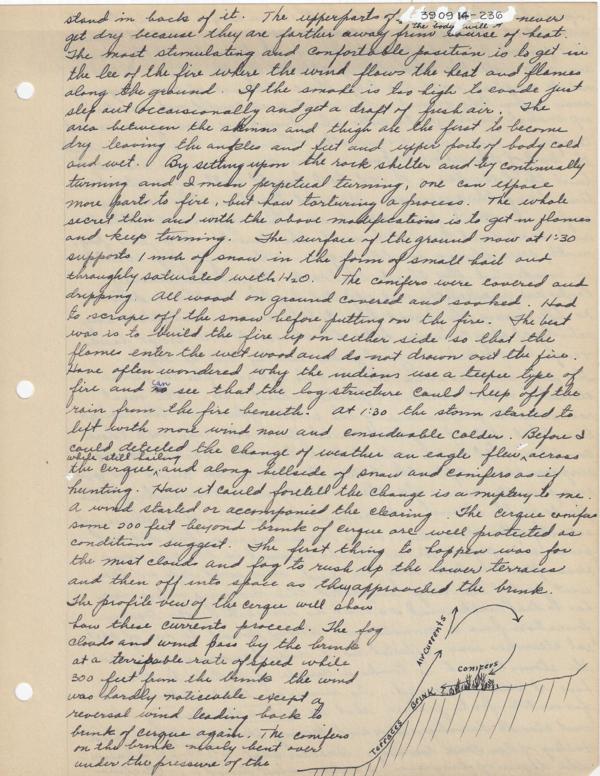 390914-236
stand in back of it. The upper parts of the body will never
get dry because they are farther away from source of heat.
The most stimulating and confortable position is to get in
the lee of the fire where the wind flows the heat and flames
along the ground. If the smoke is too high to evade just
step out occaisionally and get a draft of fresh air. The
area between the shinns and thigh are the first to become
dry leaving the ankles and feet and upper parts of body cold
and wet. By setting upon the rock shelter and by continually
turning and I mean perpetual turning, one can expose
more parts to fire, but how torturing a process. The whole
secret then and with the above modifications is to get in flames
and keep turning. The surface of the ground now at 1:30
supports 1 inch of snow in the form of small hail and
throughly saturated with H2O. The conifers were covered and
dripping. All wood on ground covered and soaked. Had
to scrape off the snow before putting on the fire. The best
was is to build the fire up on either side so that the
flames enter the wet wood and do not drown out the fire.
Have often wondered why the indians use a teepee type of
fire and can see that the log structure could keep off the
rain from the fire beneath. At 1:30 the storm started to
left with more wind now and considerable colder. Before I
could detected the change of weather an eagle flew, while still hailing, across
the cirque, and along hillside of snow and conifers as if
hunting. How it could foretell the change is a mystery to me.
A wind started or accompanied the clearing. The cirque conifers
some 200 feet beyond brink of cirque are well protected as
conditions suggest. The first thing to happen was for
the mist clouds and fog to rush up the lower terraces
and then off into space as they approached the brink.
The profile view of the cirque will show
how these currents proceed. The fog
clouds and wind pass by the brink
at a terrible rate of speed while
300 feet from the brink the wind
was hardly noticeable except a
reversal wind leading back to
brink of cirque again. The conifers
on the brink nearly bent over
under the pressure of the
Air Currents
Conifers
Brink
Terraces